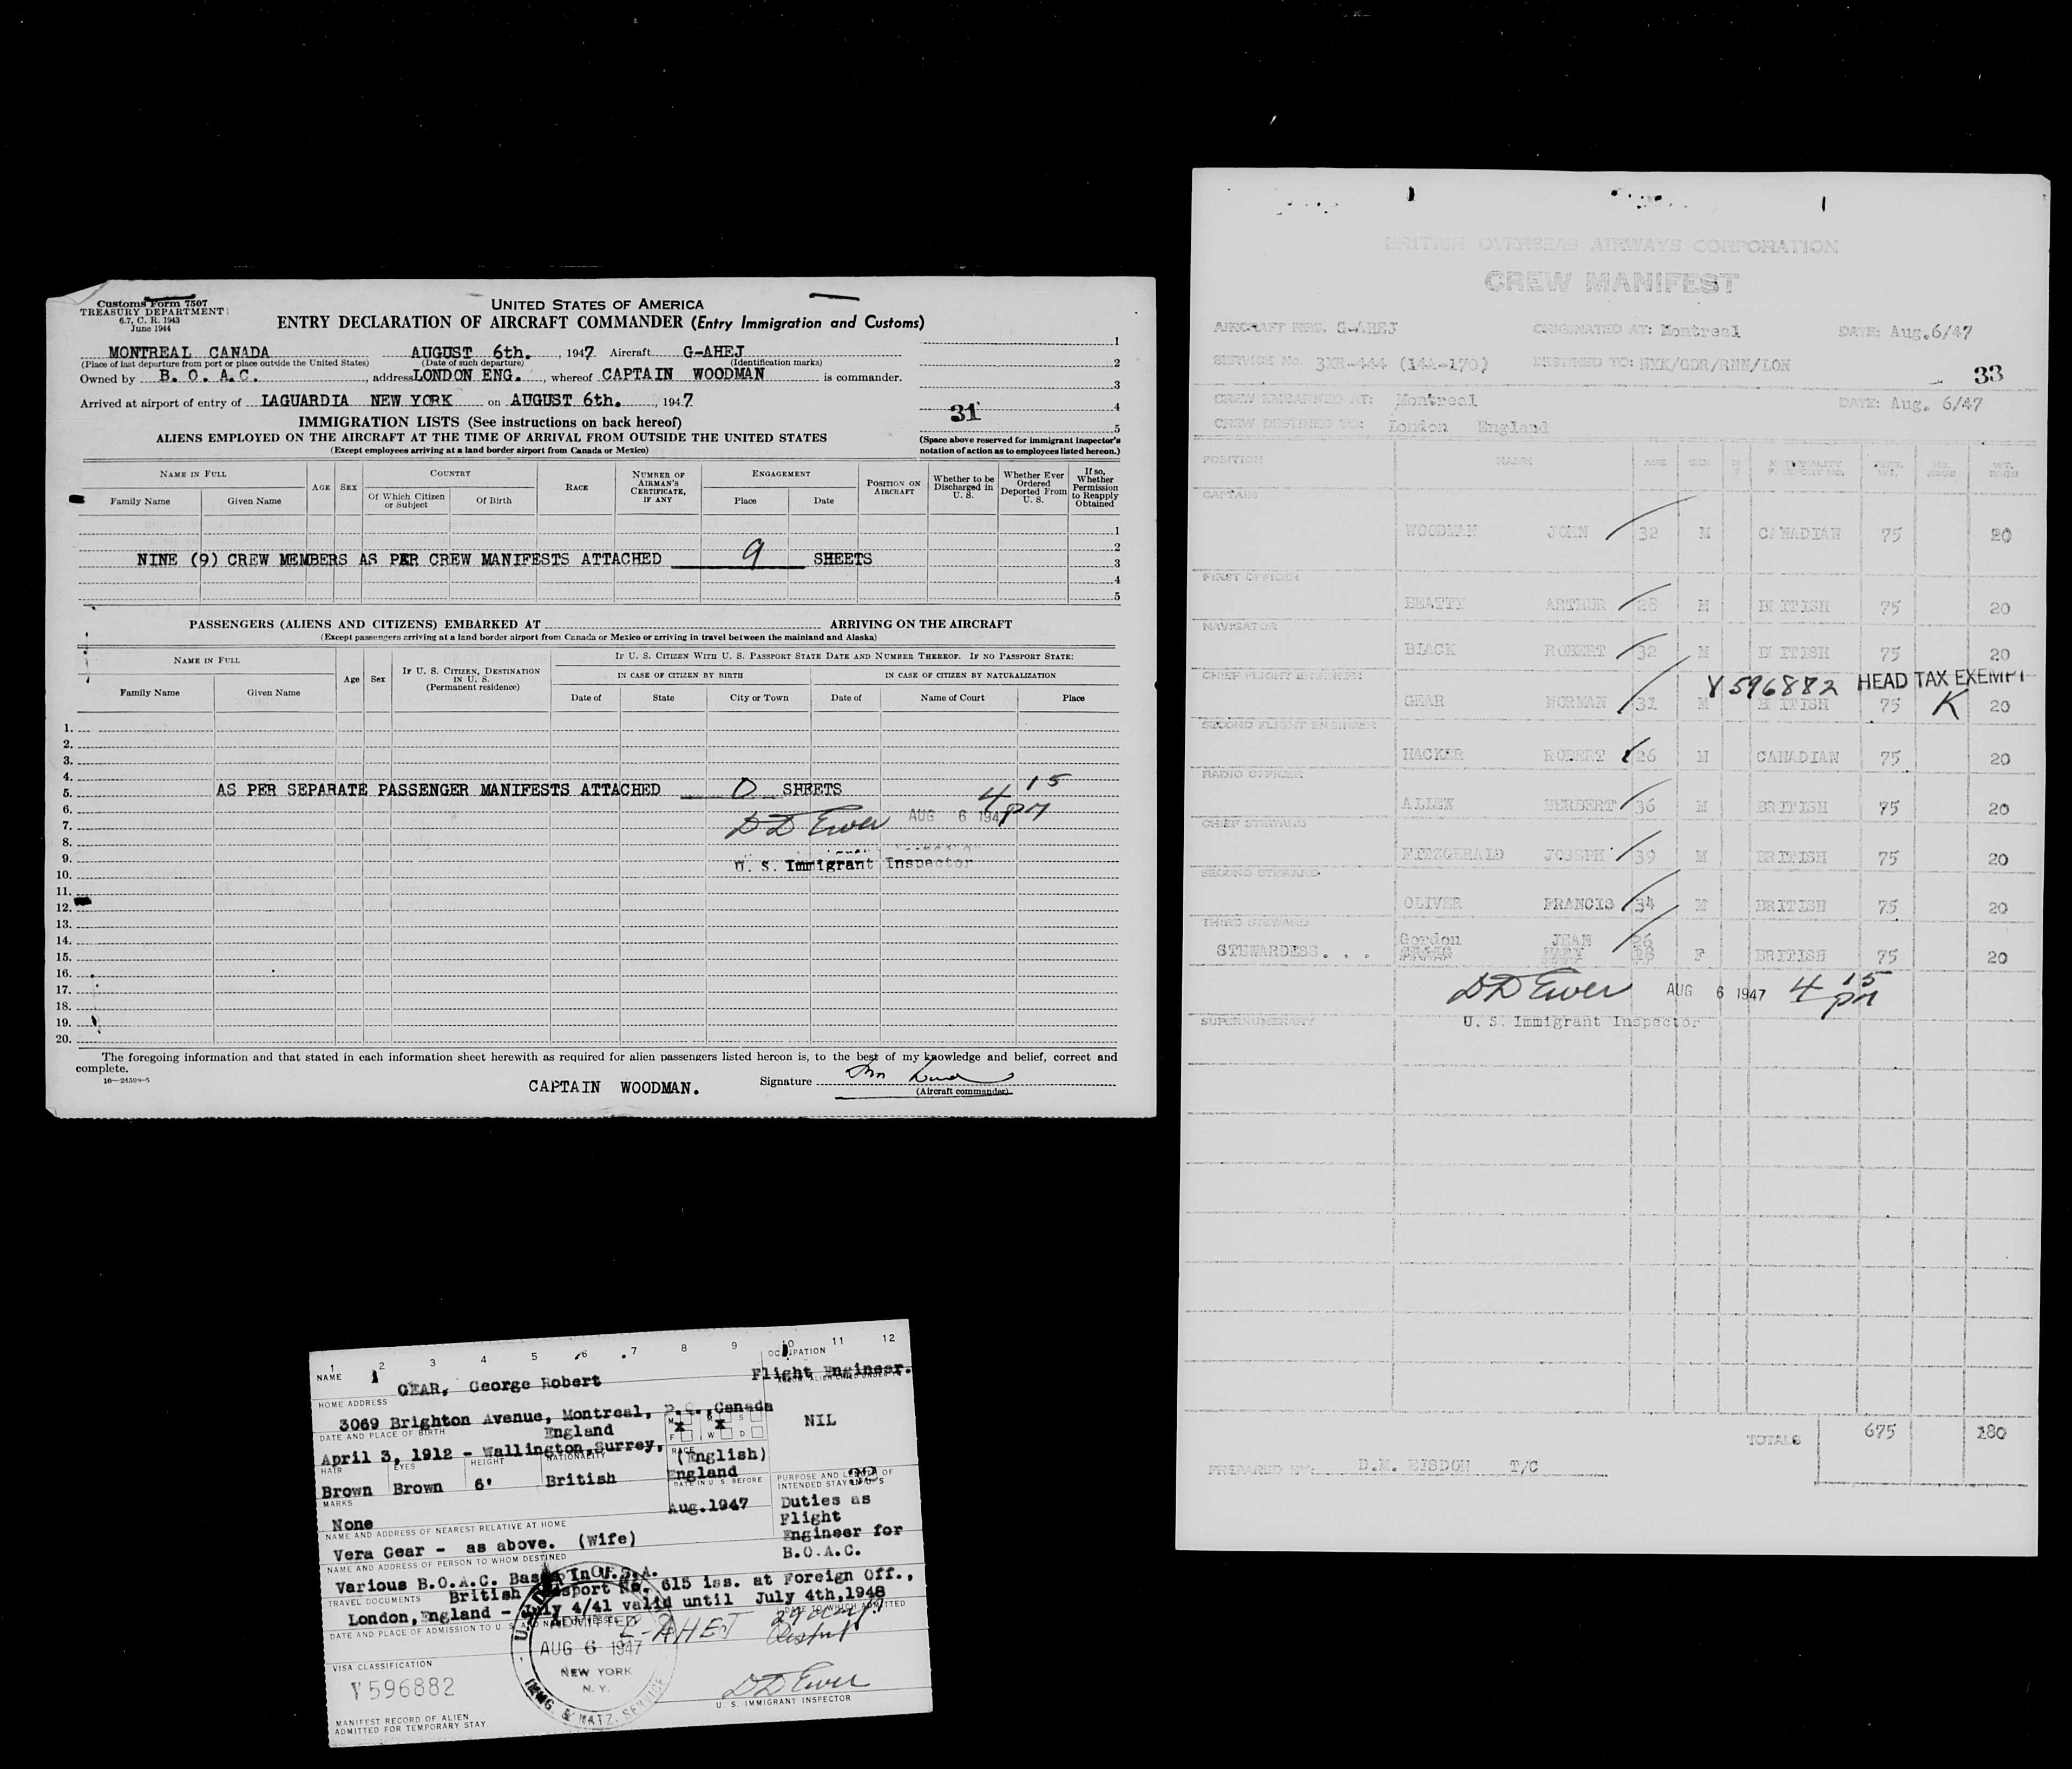 Customs Form 7507
TREASURY DEPARTMENT
6.7, C. R. 1943
June 1944
UNITED STATES OF AMERICA
ENTRY DECLARATION OF AIRCRAFT COMMANDER (Entry Immigration and Customs)
MONTREAL CANADA AUGUST 6th. , 1947 Aircraft G-AHEJ
(Place of last departure from port or place outside the United States) (Date of such departure) (Identification marks)
Owned by B. O. A. C. , address LONDON ENG. , whereof CAPTAIN WOODMAN is commander.
Arrived at airport of entry of LAGUARDIA NEW YORK on AUGUST 6th. , 1947
1
2
3
4
5
31
(Space above reserved for immigrant inspector's notation of action as to employees listed hereon.)
IMMIGRATION LISTS (See instructions on back hereof)
ALIENS EMPLOYED ON THE AIRCRAFT AT THE TIME OF ARRIVAL FROM OUTSIDE THE UNITED STATES
(Except employees arriving at a land border airport from Canada or Mexico)
NAME IN FULL
Family Name Given Name
AGE SEX
COUNTRY
Of Which Citizen or Subject Of Birth
RACE
NUMBER OF AIRMAN'S CERTIFICATE, IF ANY
ENGAGEMENT
Place Date
POSITION ON AIRCRAFT
Whether to be Discharged in U. S.
Whether Ever Ordered Deported From U. S.
If so, Whether Permission to Reapply Obtained
1
2
NINE (9) CREW MEMBERS AS PER CREW MANIFESTS ATTACHED 9 SHEETS 3
4
5
PASSENGERS (ALIENS AND CITIZENS) EMBARKED AT ARRIVING ON THE AIRCRAFT
(Except passengers arriving at a land border airport from Canada or Mexico or arriving in travel between the mainland and Alaska)
NAME IN FULL
Family Name Given Name
Age Sex
IF U. S. CITIZEN, DESTINATION IN U. S.
(Permanent residence)
IF U. S. CITIZEN WITH U. S. PASSPORT STATE DATE AND NUMBER THEREOF. IF NO PASSPORT STATE:
IN CASE OF CITIZEN BY BIRTH IN CASE OF CITIZEN BY NATURALIZATION
Date of State City or Town Date of Name of Court Place
1.
2.
3.
4.
5. AS PER SEPARATE PASSENGER MANIFESTS ATTACHED 0 SHEETS 4 15 pm
6.
7. D D Ewer AUG 6 1947
8.
9. U. S. Immigrant Inspector
10.
11.
12.
13.
14.
15.
16.
17.
18.
19.
20.
The foregoing information and that stated in each information sheet herewith as required for alien passengers listed hereon is, to the best of my knowledge and belief, correct and
complete.
16—24598-5
CAPTAIN WOODMAN. Signature
(Aircraft commander)
BRITISH OVERSEAS AIRWAYS CORPORATION
CREW MANIFEST
AIRCRAFT REG. G-AHEJ ORIGINATED AT: Montreal DATE: Aug.6/47
SERVICE No. 3NR-444 (14A-170) DESTINED TO: NYK/GDR/RNN/LON
33
CREW EMBARKED AT: Montreal DATE: Aug. 6/47
CREW DESTINED TO: London England
POSITION NAME AGE SEX
CAPTAIN
WOODMAN JOHN 32 M CANADIAN 75 20
FIRST OFFICER
BEATTY ARTHUR 28 M BRITISH 75 20
NAVIGATOR
BLACK ROBERT 32 M BRITISH 75 20
V596882 HEAD TAX EXEMPT
CHIEF FLIGHT ENGINEER
GEAR NORMAN 31 M BRITISH 75 K 20
SECOND FLIGHT ENGINEER
HACKER ROBERT 26 M CANADIAN 75 20
RADIO OFFICER
ALLEN HERBERT 36 M BRITISH 75 20
CHIEF STEWARD
FITZGERALD JOSEPH 39 M BRITISH 75 20
SECOND STEWARD
OLIVER FRANCIS 34 M BRITISH 75 20
THIRD STEWARD
Gordon JEAN 26
STEWARDESS. . . F BRITISH 75 20
D D Ewer AUG 6 1947 4 15 pm
SUPERNUMERARY U. S. Immigrant Inspector
TOTALS 675 180
PREPARED BY: D.M. BISDON T/C
1 2 3 4 5 6 7 8 9 10 11 12
NAME GEAR, George Robert
OCCUPATION Flight Engineer.
HOME ADDRESS
3069 Brighton Avenue, Montreal, P.Q., Canada
NIL
DATE AND PLACE OF BIRTH England
April 3, 1912 - Wallington, Surrey,
M X F M X S W D
HAIR EYES HEIGHT NATIONALITY RACE (English)
Brown Brown 6' British England
DATE IN U S BEFORE
Aug.1947
PURPOSE AND LENGTH OF INTENDED STAY IN U S
Duties as
Flight
Engineer for
B.O.A.C.
MARKS
None
NAME AND ADDRESS OF NEAREST RELATIVE AT HOME
Vera Gear - as above. (Wife)
NAME AND ADDRESS OF PERSON TO WHOM DESTINED
Various B.O.A.C. Bases in U.S.A.
TRAVEL DOCUMENTS British Passport No. 615 iss. at Foreign Off.,
London, England - July 4/41 valid until July 4th,1948
DATE AND PLACE OF ADMISSION TO U. S.
DATE TO WHICH ADMITTED
29 days
ADMITTED
AUG 6 1947
NEW YORK
N. Y.
IMMG. & NATZ. SERVICE
G-AHEJ
VISA CLASSIFICATION
V596882
D D Ewer
U. S. IMMIGRANT INSPECTOR
MANIFEST RECORD OF ALIEN
ADMITTED FOR TEMPORARY STAY